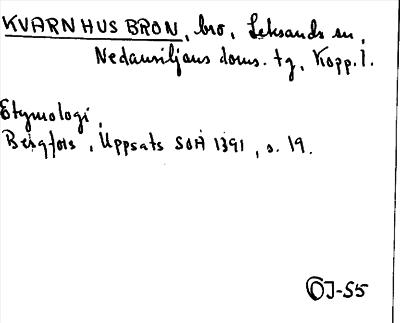 KVARNHUSBRON, bro, Leksands sn,
Nedansiljans doms. tg, Kopp. l.
Etymologi,
Bergfors, Uppsats SOÄ 1391, s. 19.
OJ-55